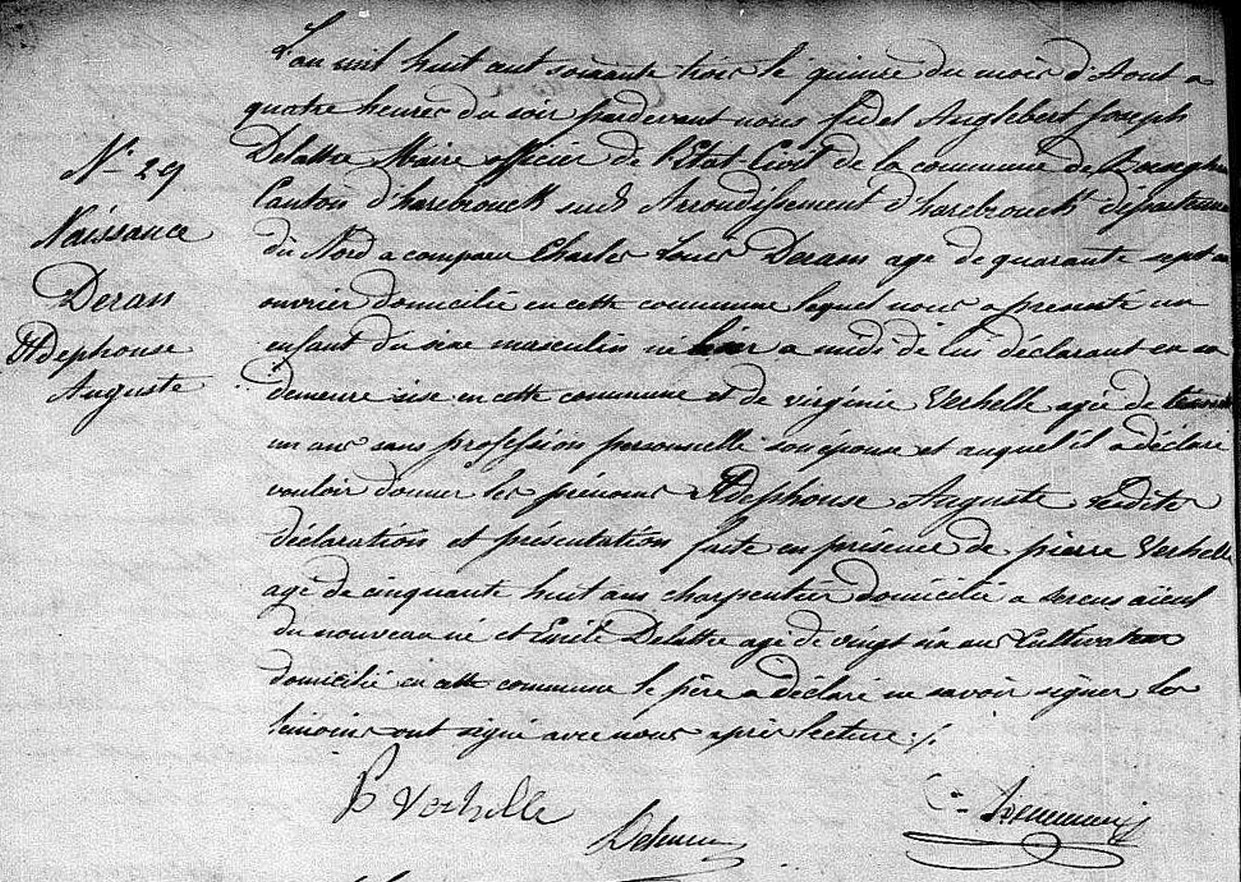 L'an mil huit cent soixante trois le quinze du mois d'Aout a
quatre heures du soir pardevant nous fidel Anglebert Joseph
Delattre Maire officier de l'Etat-Civil de la commune de
N° 29
Canton d'hazebrouck sud Arrondissement d'hazebrouck département
Naissance
du Nord a comparu Charles Louis Deram age de quarante sept
Deram
ouvrier domicilié en cette commune lequel nous a presenté un
Ildephonse
enfant du sexe masculin né hier a midi de lui déclarant en sa
Auguste
demeure sise en cette commune et de virginie Verhelle agée de trente
un ans sans profession personnelle son épouse et auquel il a déclaré
vouloir donner les prénoms Ildephonse Auguste lesdites
déclaration et présentation faite en présence de pierre Verhelle
agé de cinquante huit ans charpentier domicilié a sercus aïeul
du nouveau né et Emile Delattre agé de vingt six ans Cultivateur
domicilié en cette commune le père a déclaré ne savoir signer les
témoins ont signé avec nous après lecture ./.
P Verhelle